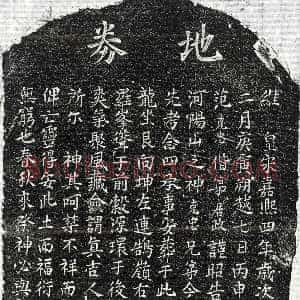 地券
維 皇宋嘉熙四年歲次
二月庚寅朔越七日丙申
范 偕弟居政謹昭告
河陽山之神 兄弟今
先考合四承事安葬于此
龍坐艮向坤左連鵠嶺右
羅峯聳于前穀源環于後
英華聚 藏僉謂真吉人
所尔神其呵禁不祥而
俾亡靈得安此土而福衍
無窮也春秋來 神必與